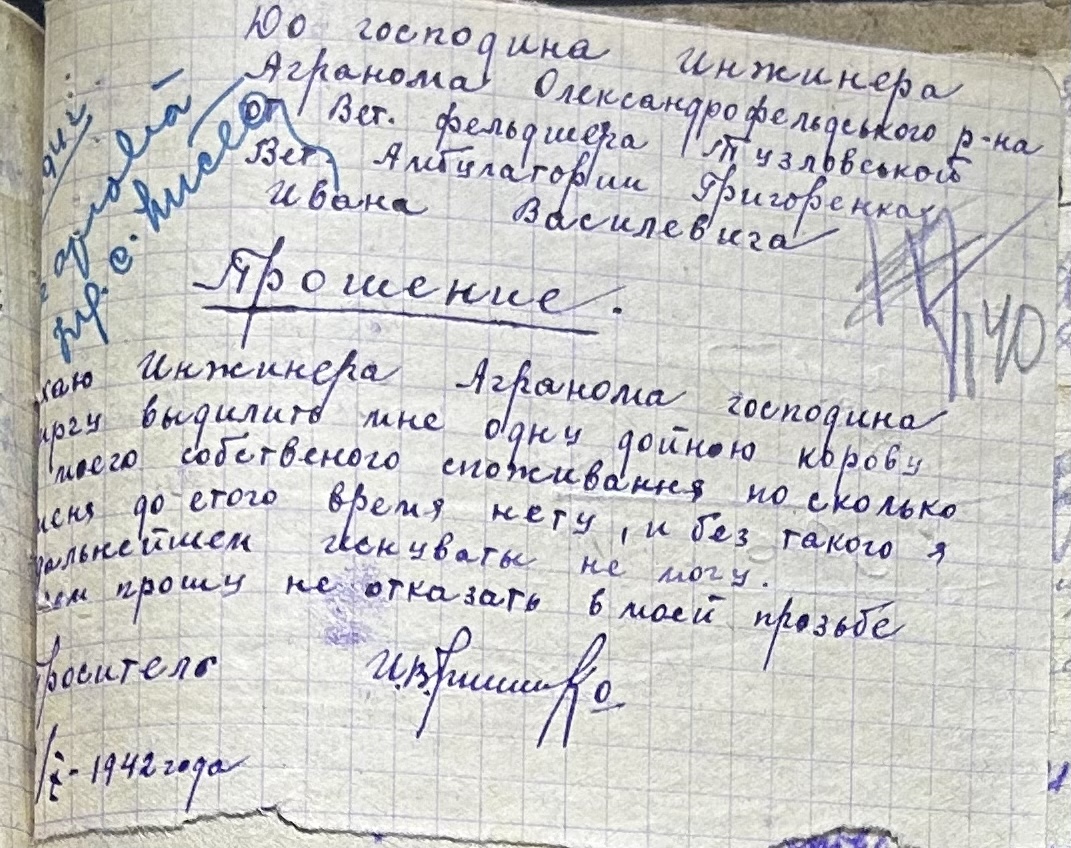 До господина Инжинера
Агранома Олександрофельдського р-на
от Вет. фельдшера Тузловськой
Вет. Амбулатории Григоренка
Ивана Василевича
Прошение.
Инжинера Агранома господина
выдилить мне одну дойною корову
моего собственого споживання по сколько
меня до етого время нету, и без такого я
дальнейшем иснувать не могу.
прошу не отказать в моей прозьбе
роситель И.В.
1942 года
140